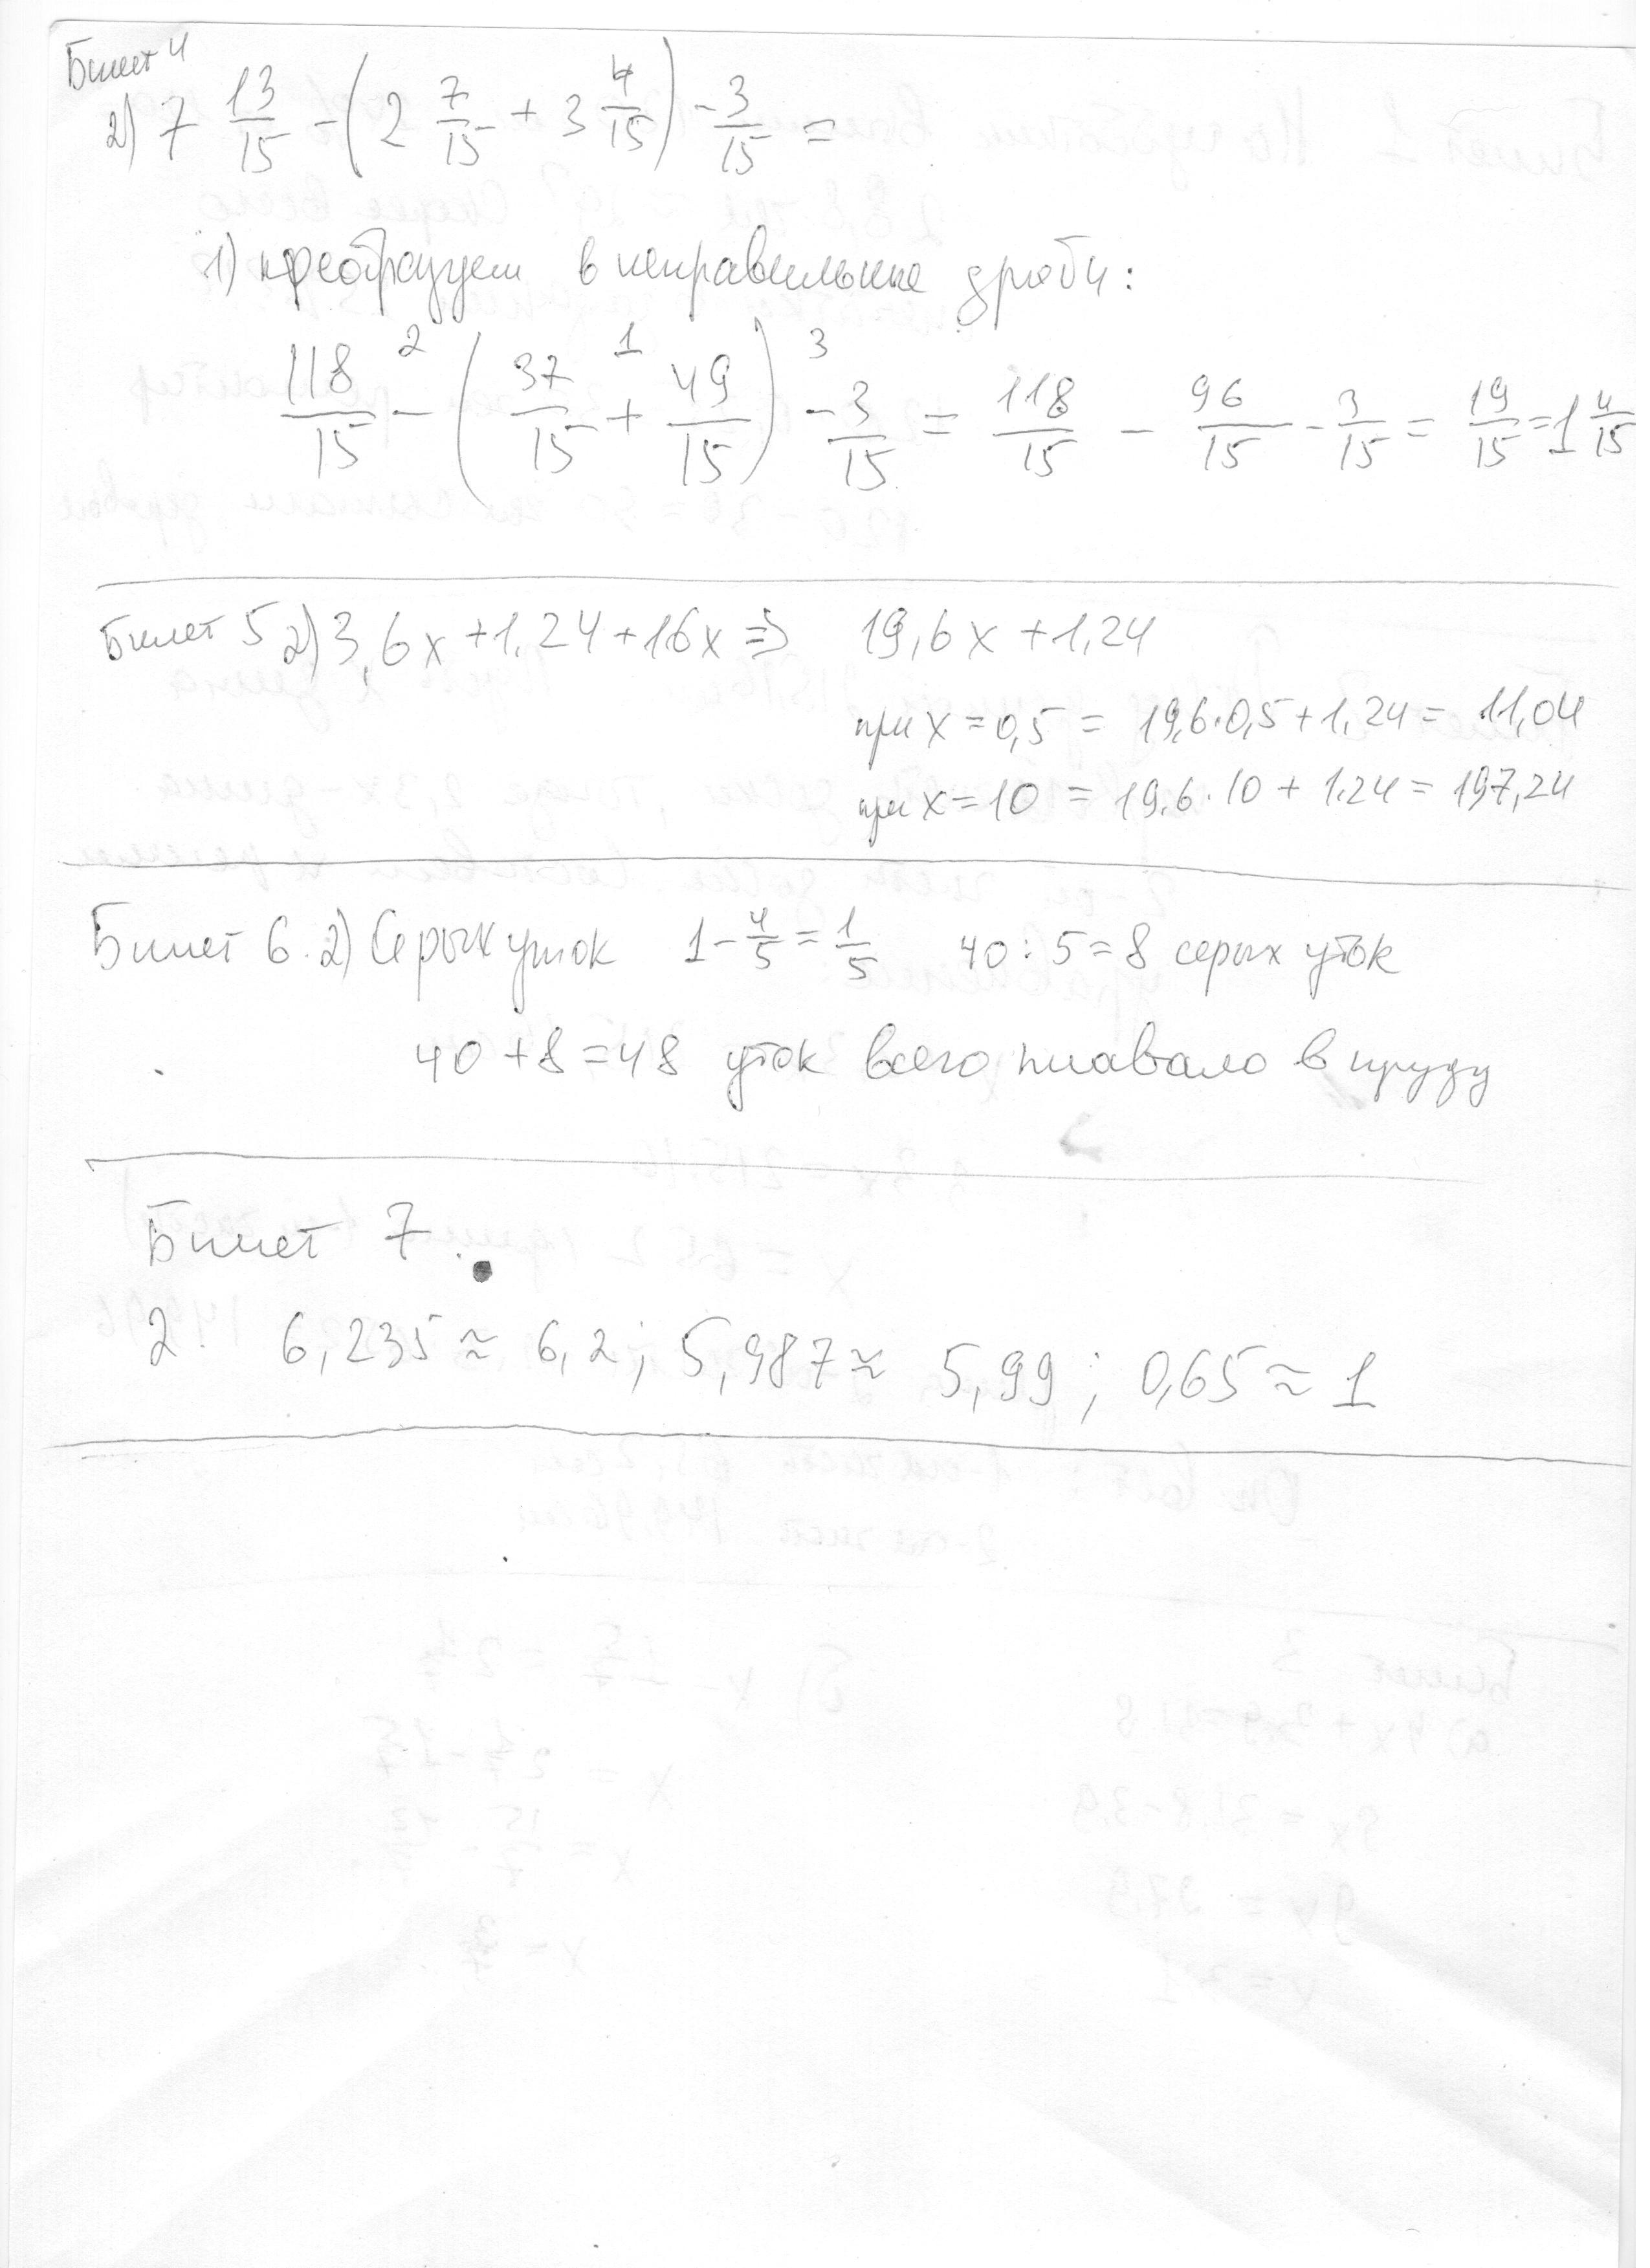 Билет 4
2) 7 13/15 - (2 7/15 + 3 4/15) - 3/15 =
1) преобразуем в неправильные дроби:
2 1 3
118/15 - (37/15 + 49/15) - 3/15 = 118/15 - 96/15 - 3/15 = 19/15 = 1 4/15
Билет 5 2) 3,6x + 1,24 + 16x => 19,6x + 1,24
при x = 0,5 = 19,6·0,5 + 1,24 = 11,04
при x = 10 = 19.6·10 + 1.24 = 197,24
Билет 6. 2) Серых уток 1 - 4/5 = 1/5 40 : 5 = 8 серых уток
40 + 8 = 48 уток всего плавало в пруду
Билет 7.
2. 6,235 ≈ 6,2 ; 5,987 ≈ 5,99 ; 0,65 ≈ 1